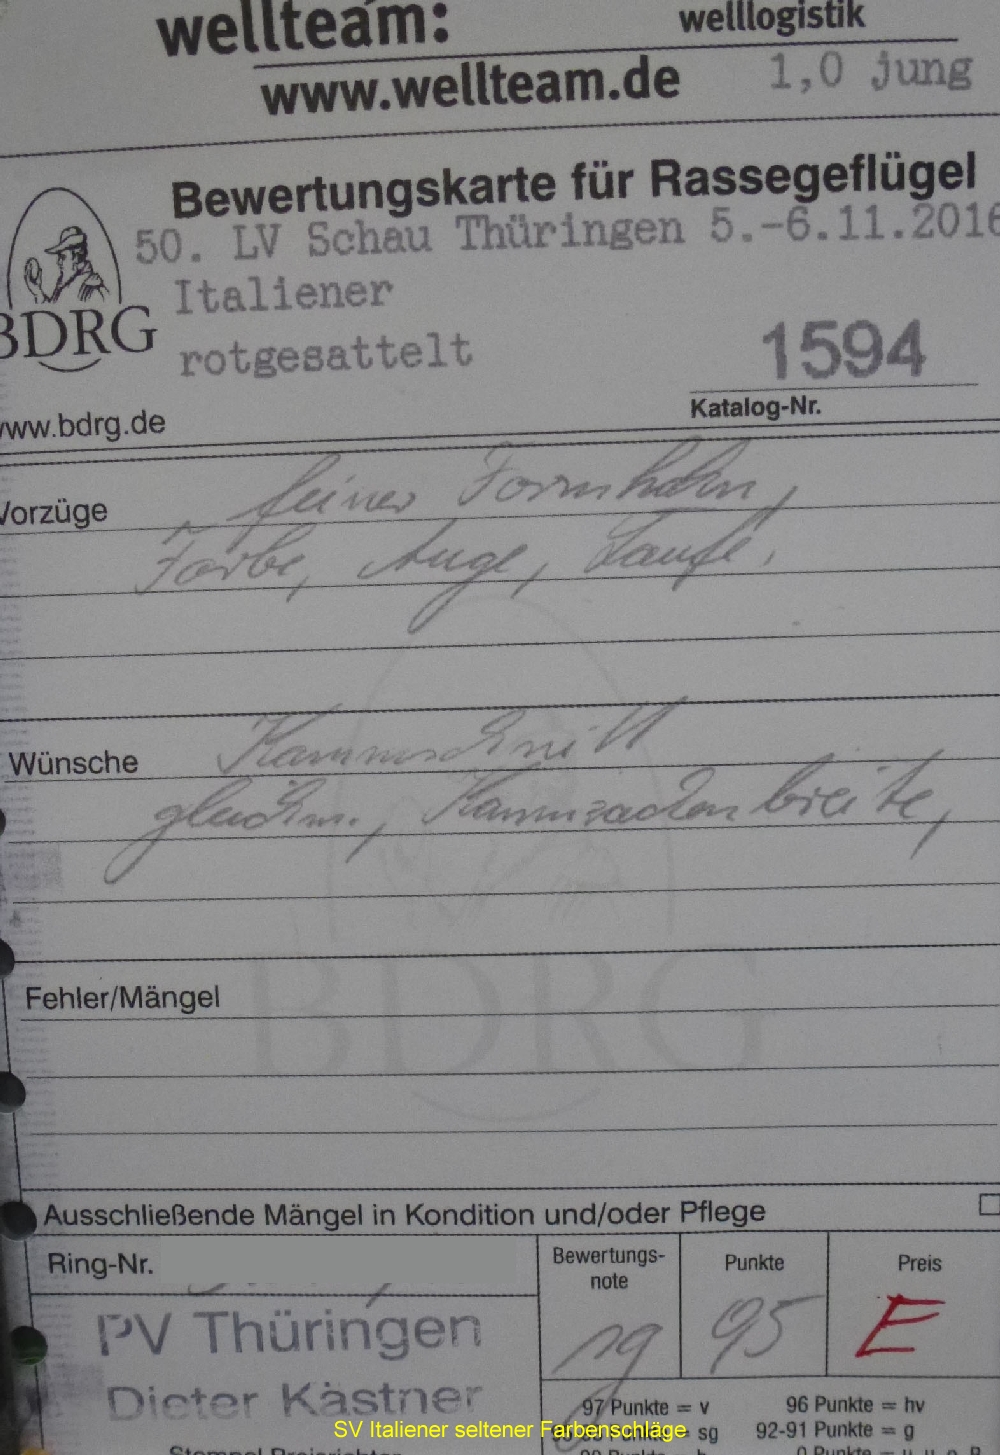 wellteam:
welllogistik
www.wellteam.de
1,0 jung
Bewertungskarte für Rassegeflügel
50. LV Schau Thüringen 5.-6.11.2016
Italiener
BDRG
rotgesattelt
1594
Katalog-Nr.
www.bdrg.de
Vorzüge
feiner Formhahn,
Farbe, Auge, Läufe,
Wünsche
Kammschnitt
gleichm., Kammzacken breite,
BDRG
Fehler/Mängel
Ausschließende Mängel in Kondition und/oder Pflege
Ring-Nr.
Bewertungs-
note
Punkte
Preis
sg
95
E
PV Thüringen
Dieter Kästner
97 Punkte = v
96 Punkte = hv
Punkte = sg
92-91 Punkte = g
SV Italiener seltener Farbenschläge